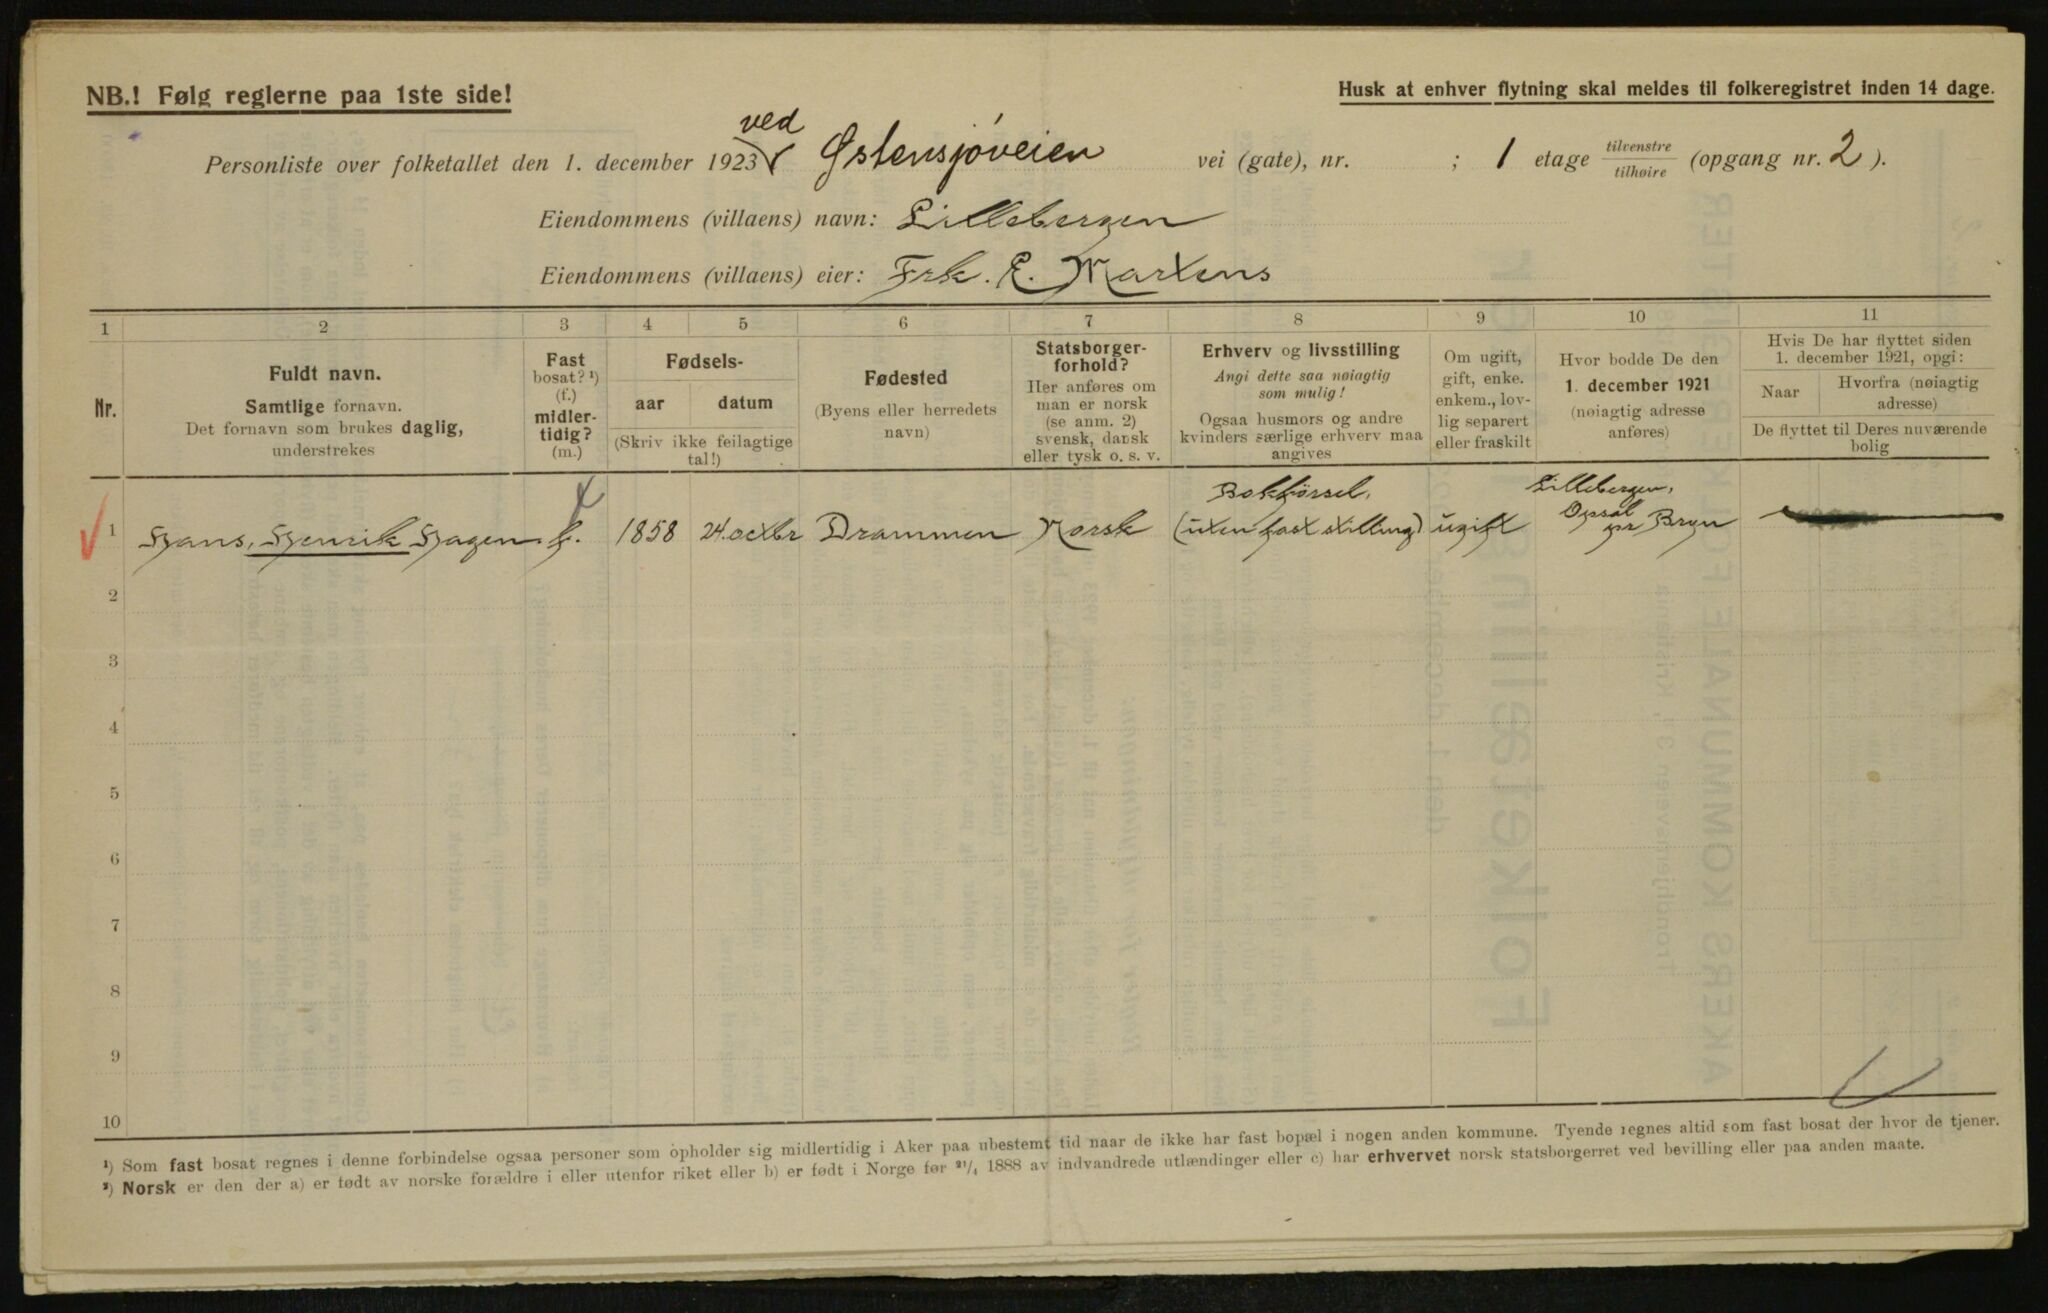 NB.! Følg reglerne paa 1ste side!
Husk at enhver flytning skal meldes til folkeregistret inden 14 dage.
ved
Personliste over folketallet den 1. december 1923 Østensjøveien vei (gate), nr. ; 1 etage tilvenstre tilhøire (opgang nr. 2 ).
Eiendommens (villaens) navn: Lillebergen
Eiendommens (villaens) eier: Frk. E. Martens
1 2 3 4 5 6 7 8 9 10 11
Nr.
Fuldt navn.
Samtlige fornavn.
Det fornavn som brukes daglig,
understrekes
Fast
bosat? ¹)
(f.)
midler-
tidig?
(m.)
Fødsels-
aar datum
(Skriv ikke feilagtige
tal!)
Fødested
(Byens eller herredets
navn)
Statsborger-
forhold?
Her anføres om
man er norsk
(se anm. 2)
svensk, dansk
eller tysk o. s. v.
Erhverv og livsstilling
Angi dette saa nøiagtig
som mulig!
Ogsaa husmors og andre
kvinders særlige erhverv maa
angives
Om ugift,
gift, enke.
enkem., lov-
lig separert
eller fraskilt
Hvor bodde De den
1. december 1921
(nøiagtig adresse
anføres)
Hvis De har flyttet siden
1. december 1921, opgi:
Naar Hvorfra (nøiagtig
adresse)
De flyttet til Deres nuværende
bolig
Bokførsel, Lillebergen,
Opsal
1 Hans, Henrik Hagen f. 1858 24. octbr Drammen Norsk (uten fast stilling) ugift pr Bryn
2
3
4
5
6
7
8
9
10
¹) Som fast bosat regnes i denne forbindelse ogsaa personer som opholder sig midlertidig i Aker paa ubestemt tid naar de ikke har fast bopæl i nogen anden kommune. Tyende regnes altid som fast bosat der hvor de tjener.
²) Norsk er den der a) er født av norske forældre i eller utenfor riket eller b) er født i Norge før ²¹/₄ 1888 av indvandrede utlændinger eller c) har erhvervet norsk statsborgerret ved bevilling eller paa anden maate.